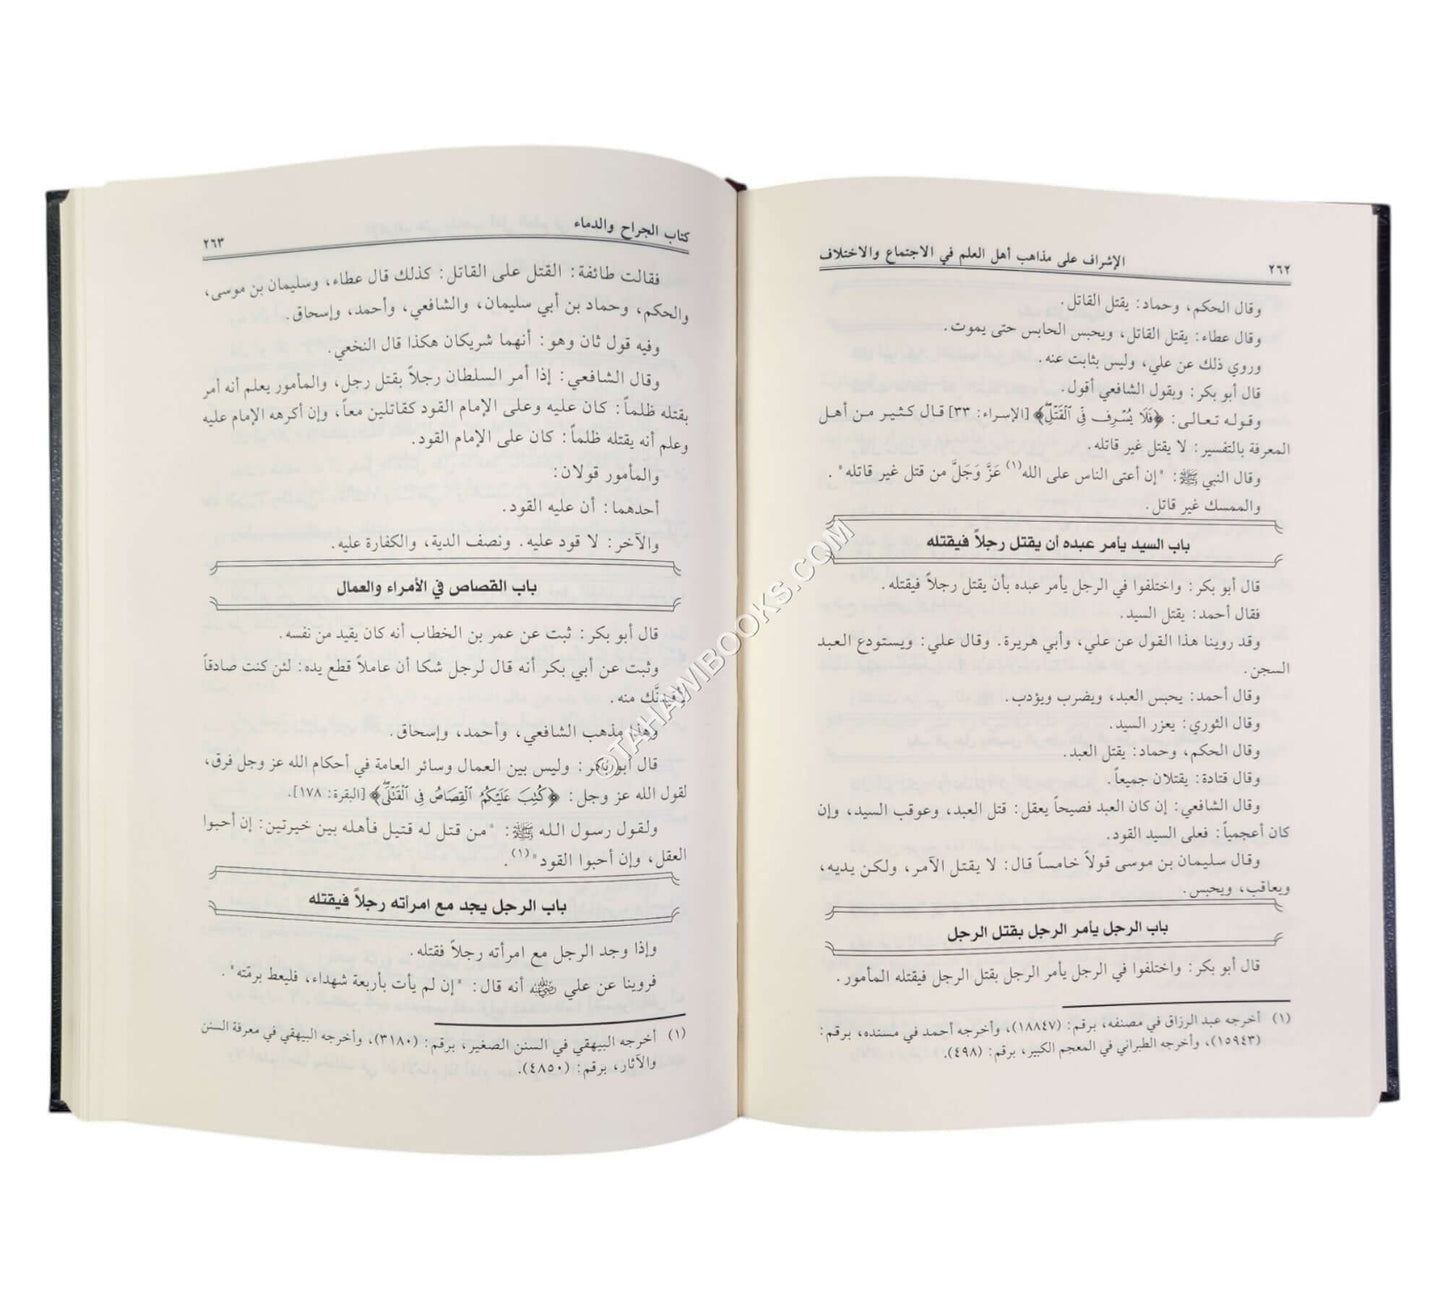 الإشراف على مذاهب أهل العلم في الاجتماع والاختلاف
٢٦٢
وقال الحكم، وحماد: يقتل القاتل.
وقال عطاء: يقتل القاتل، ويحبس الحابس حتى يموت.
وروي ذلك عن علي، وليس بثابت عنه.
قال أبو بكر: وبقول الشافعي أقول.
وقوله تعالى: ﴿فَلَا يُسْرِف فِّى ٱلْقَتْلِ﴾ [الإسراء: ٣٣] قال كثير من أهل
المعرفة بالتفسير: لا يقتل غير قاتله.
وقال النبي ﷺ: "إن أعتى الناس على الله(١) عَزَّ وَجَلَّ من قتل غير قاتله".
والممسك غير قاتل.
باب السيد يأمر عبده أن يقتل رجلاً فيقتله
قال أبو بكر: واختلفوا في الرجل يأمر عبده بأن يقتل رجلاً فيقتله.
فقال أحمد: يقتل السيد.
وقد روينا هذا القول عن علي، وأبي هريرة. وقال علي: ويستودع العبد
السجن.
وقال أحمد: يحبس العبد، ويضرب ويؤدب.
وقال الثوري: يعزر السيد.
وقال الحكم، وحماد: يقتل العبد.
وقال قتادة: يقتلان جميعاً.
وقال الشافعي: إن كان العبد فصيحاً يعقل: قتل العبد، وعوقب السيد، وإن
كان أعجمياً: فعلى السيد القود.
وقال سليمان بن موسى قولاً خامساً قال: لا يقتل الآمر، ولكن يديه،
ويعاقب، ويحبس.
باب الرجل يأمر الرجل بقتل الرجل
قال أبو بكر: واختلفوا في الرجل يأمر الرجل بقتل الرجل فيقتله المأمور.
(١) أخرجه عبد الرزاق في مصنفه، برقم: (١٨٨٤٧)، وأخرجه أحمد في مسنده، برقم:
(١٥٩٤٣)، وأخرجه الطبراني في المعجم الكبير، برقم: (٤٩٨).
كتاب الجراح والدماء
٢٦٣
فقالت طائفة: القتل على القاتل: كذلك قال عطاء، وسليمان بن موسى،
والحكم، وحماد بن أبي سليمان، والشافعي، وأحمد، وإسحاق.
وفيه قول ثان وهو: أنهما شريكان هكذا قال النخعي.
وقال الشافعي: إذا أمر السلطان رجلاً بقتل رجل، والمأمور يعلم أنه أمر
بقتله ظلماً: كان عليه وعلى الإمام القود كقاتلين معاً، وإن أكرهه الإمام عليه
وعلم أنه يقتله ظلماً: كان على الإمام القود.
والمأمور قولان:
أحدهما: أن عليه القود.
والآخر: لا قود عليه. ونصف الدية، والكفارة عليه.
باب القصاص في الأمراء والعمال
قال أبو بكر: ثبت عن عمر بن الخطاب أنه كان يقيد من نفسه.
وثبت عن أبي بكر أنه قال لرجل شكا أن عاملاً قطع يده: لئن كنت صادقاً
لأقيدنَّك منه.
وهذا مذهب الشافعي، وأحمد، وإسحاق.
قال أبو بكر: وليس بين العمال وسائر العامة في أحكام الله عز وجل فرق،
لقول الله عز وجل: ﴿كُتِبَ عَلَيْكُمُ ٱلْقِصَاصُ فِى ٱلْقَتْلَى﴾ [البقرة: ١٧٨].
ولقول رسول الله ﷺ: "من قتل له قتيل فأهله بين خيرتين: إن أحبوا
العقل، وإن أحبوا القود"(١).
باب الرجل يجد مع امرأته رجلاً فيقتله
وإذا وجد الرجل مع امرأته رجلاً فقتله.
فروينا عن علي رضي الله عنه أنه قال: "إن لم يأت بأربعة شهداء، فليعط برمّته".
(١) أخرجه البيهقي في السنن الصغير، برقم: (٣١٨٠)، وأخرجه البيهقي في معرفة السنن
والآثار، برقم: (٤٨٥٠).
©TAHAWIBOOKS.COM